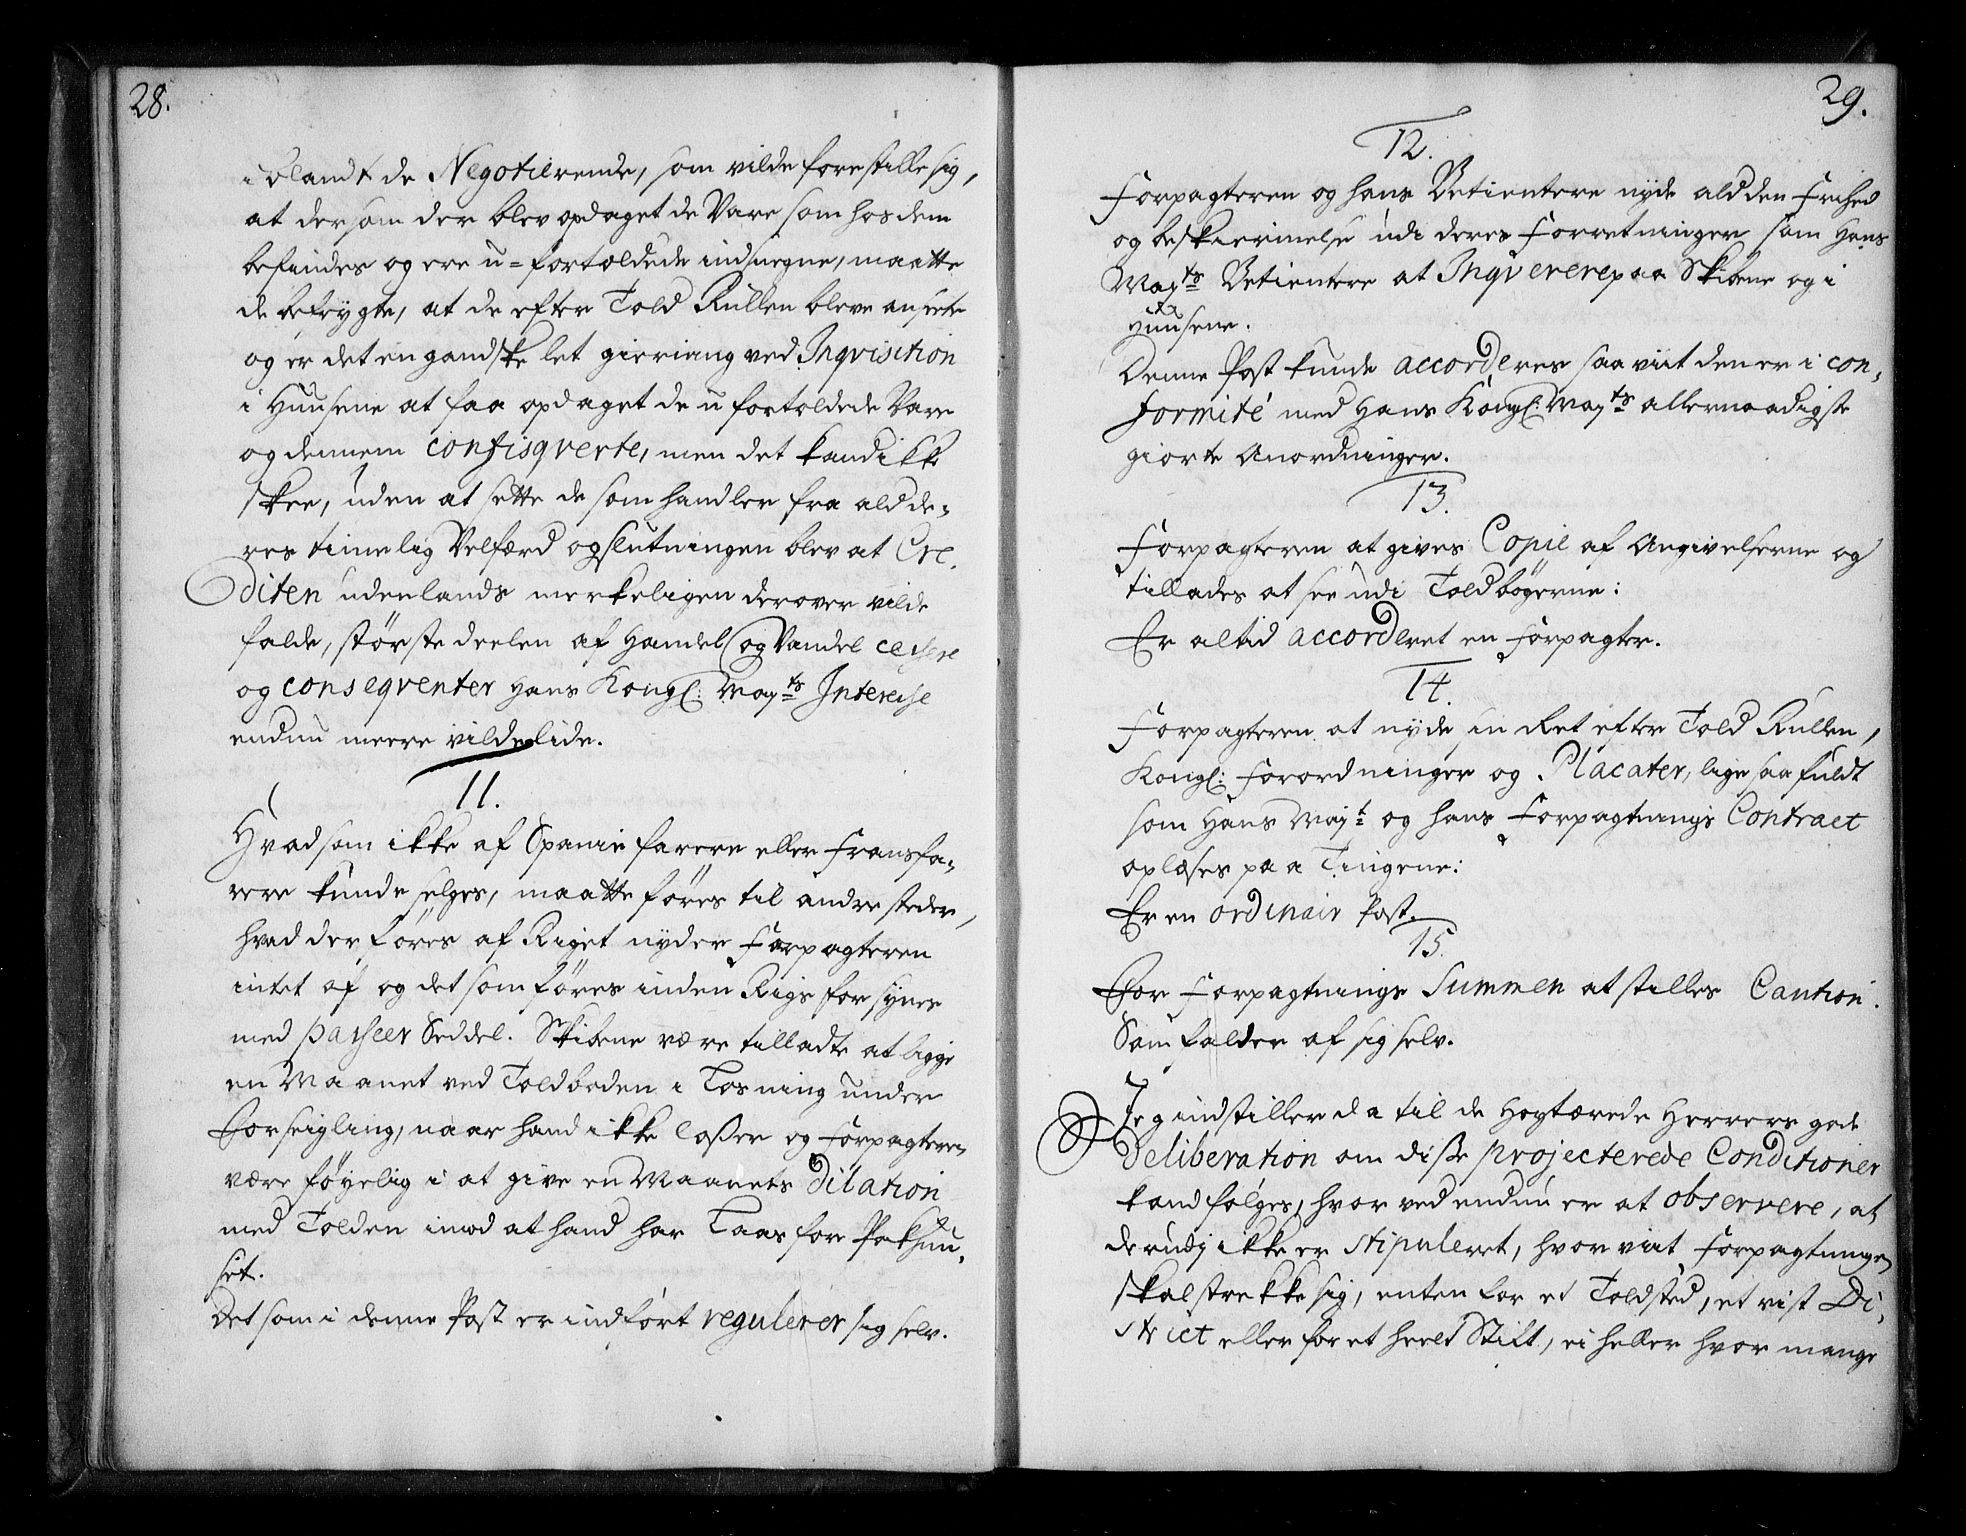 28.
iblandt de Negotierende, som vilde forestille sig,
at dersom der blev opdaget de Vare som hos dem
befindes og ere u-fortoldede indsnegne, maatte
de befrygte, at de efter Told Rullen bleve ansete
og er det en gandske let gierning ved Inqvisition
i Huusene at faa opdaget de u fortoldede Vare
og dennem confisqverte, men det kand ikke
skee, uden at sette de som handler fra ald de-
res timelig Velfærd og slutningen blev at Cre-
diten udenlands merkeligen derover vilde
falde, største deelen af Handel og Vandel cessere
og conseqventer Hans Kongl: Mayts Interesse
endnu meere vilde lide.
11.
Hvad som ikke af Spanie farere eller Fransfa-
rere kunde selges, maatte føres til andre steder,
hvad der føres af Riget nyder Forpagteren
intet af og det som føres inden Rigs forsynes
med passeer Seddel. Skibene være tilladte at ligge
en Maanet ved Toldboden i Losning under
Forseigling, naar hand ikke losser og Forpagteren
være føyelig i at give en Maanets Dilation
med Tolden imod at hand har Laas for Pakhuu-
set.
Det som i denne Post er indført regulerer sig selv.
29.
12.
Forpagteren og hans Betientere nyde ald den Frihed
og beskiermelse udi deres Forretninger som Hans
Mayts Betientere at Inqverere paa Skibene og i
Huusene.
Denne Post kunde accorderes saa vit den er i con-
formité med Hans Kongl: Mayts allernaadigste
giorte Anordninger.
13.
Forpagteren at gives Copie af Angivelserne og
tillades at see udi Toldbøgerne:
Er altid accorderet en Forpagter.
14.
Forpagteren at nyde sin Ret efter Told Rullen,
Kongl: Forordninger og Placater, lige saa fuldt
som Hans Mayt og hans Forpagtnings Contract
oplæses paa Tingene:
Er en ordinair Post.
15.
For Forpagtnings Summen at stilles Caution.
Som falder af sig selv.
Jeg indstiller da til de Høgtærede Herrers gode
Deliberation om disse projecterede Conditioner
kand følges, hvor ved endnu er at observere, at
derudj ikke er stipuleret, hvor vit Forpagtningen
skal strekke sig, enten for et Toldsted, et vist Di-
strict eller for et heelt Stift, ei heller hvor mange